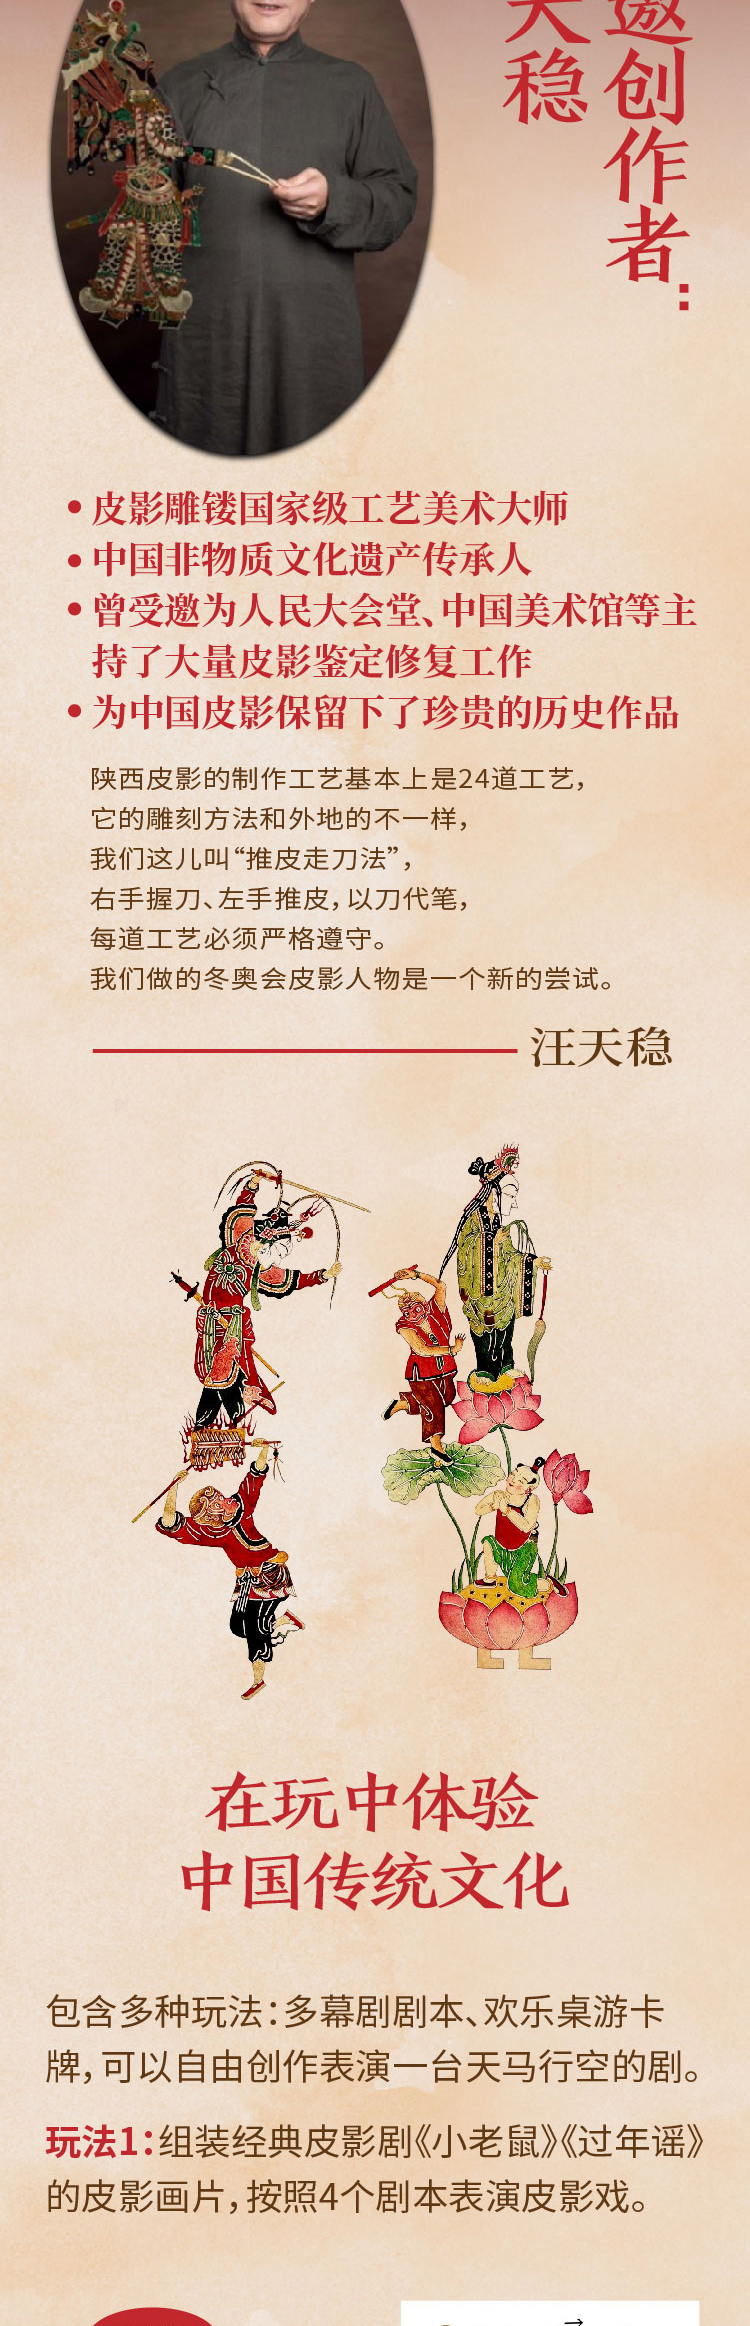 邀创作者：
天稳
• 皮影雕镂国家级工艺美术大师
• 中国非物质文化遗产传承人
• 曾受邀为人民大会堂、中国美术馆等主
持了大量皮影鉴定修复工作
• 为中国皮影保留下了珍贵的历史作品
陕西皮影的制作工艺基本上是24道工艺，
它的雕刻方法和外地的不一样，
我们这儿叫“推皮走刀法”，
右手握刀、左手推皮，以刀代笔，
每道工艺必须严格遵守。
我们做的冬奥会皮影人物是一个新的尝试。
汪天稳
在玩中体验
中国传统文化
包含多种玩法：多幕剧剧本、欢乐桌游卡
牌，可以自由创作表演一台天马行空的剧。
玩法1：组装经典皮影剧《小老鼠》《过年谣》
的皮影画片，按照4个剧本表演皮影戏。